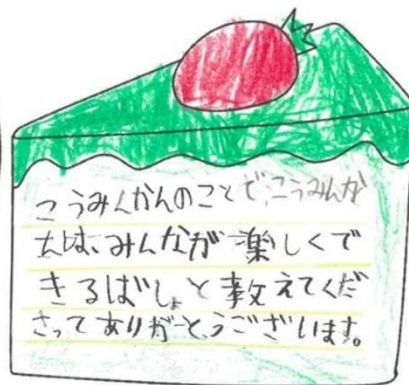 こうみんかんのことで、こうみんか
んは、みんなが楽しくで
きるばしょと教えてくだ
さってありがとうございます。